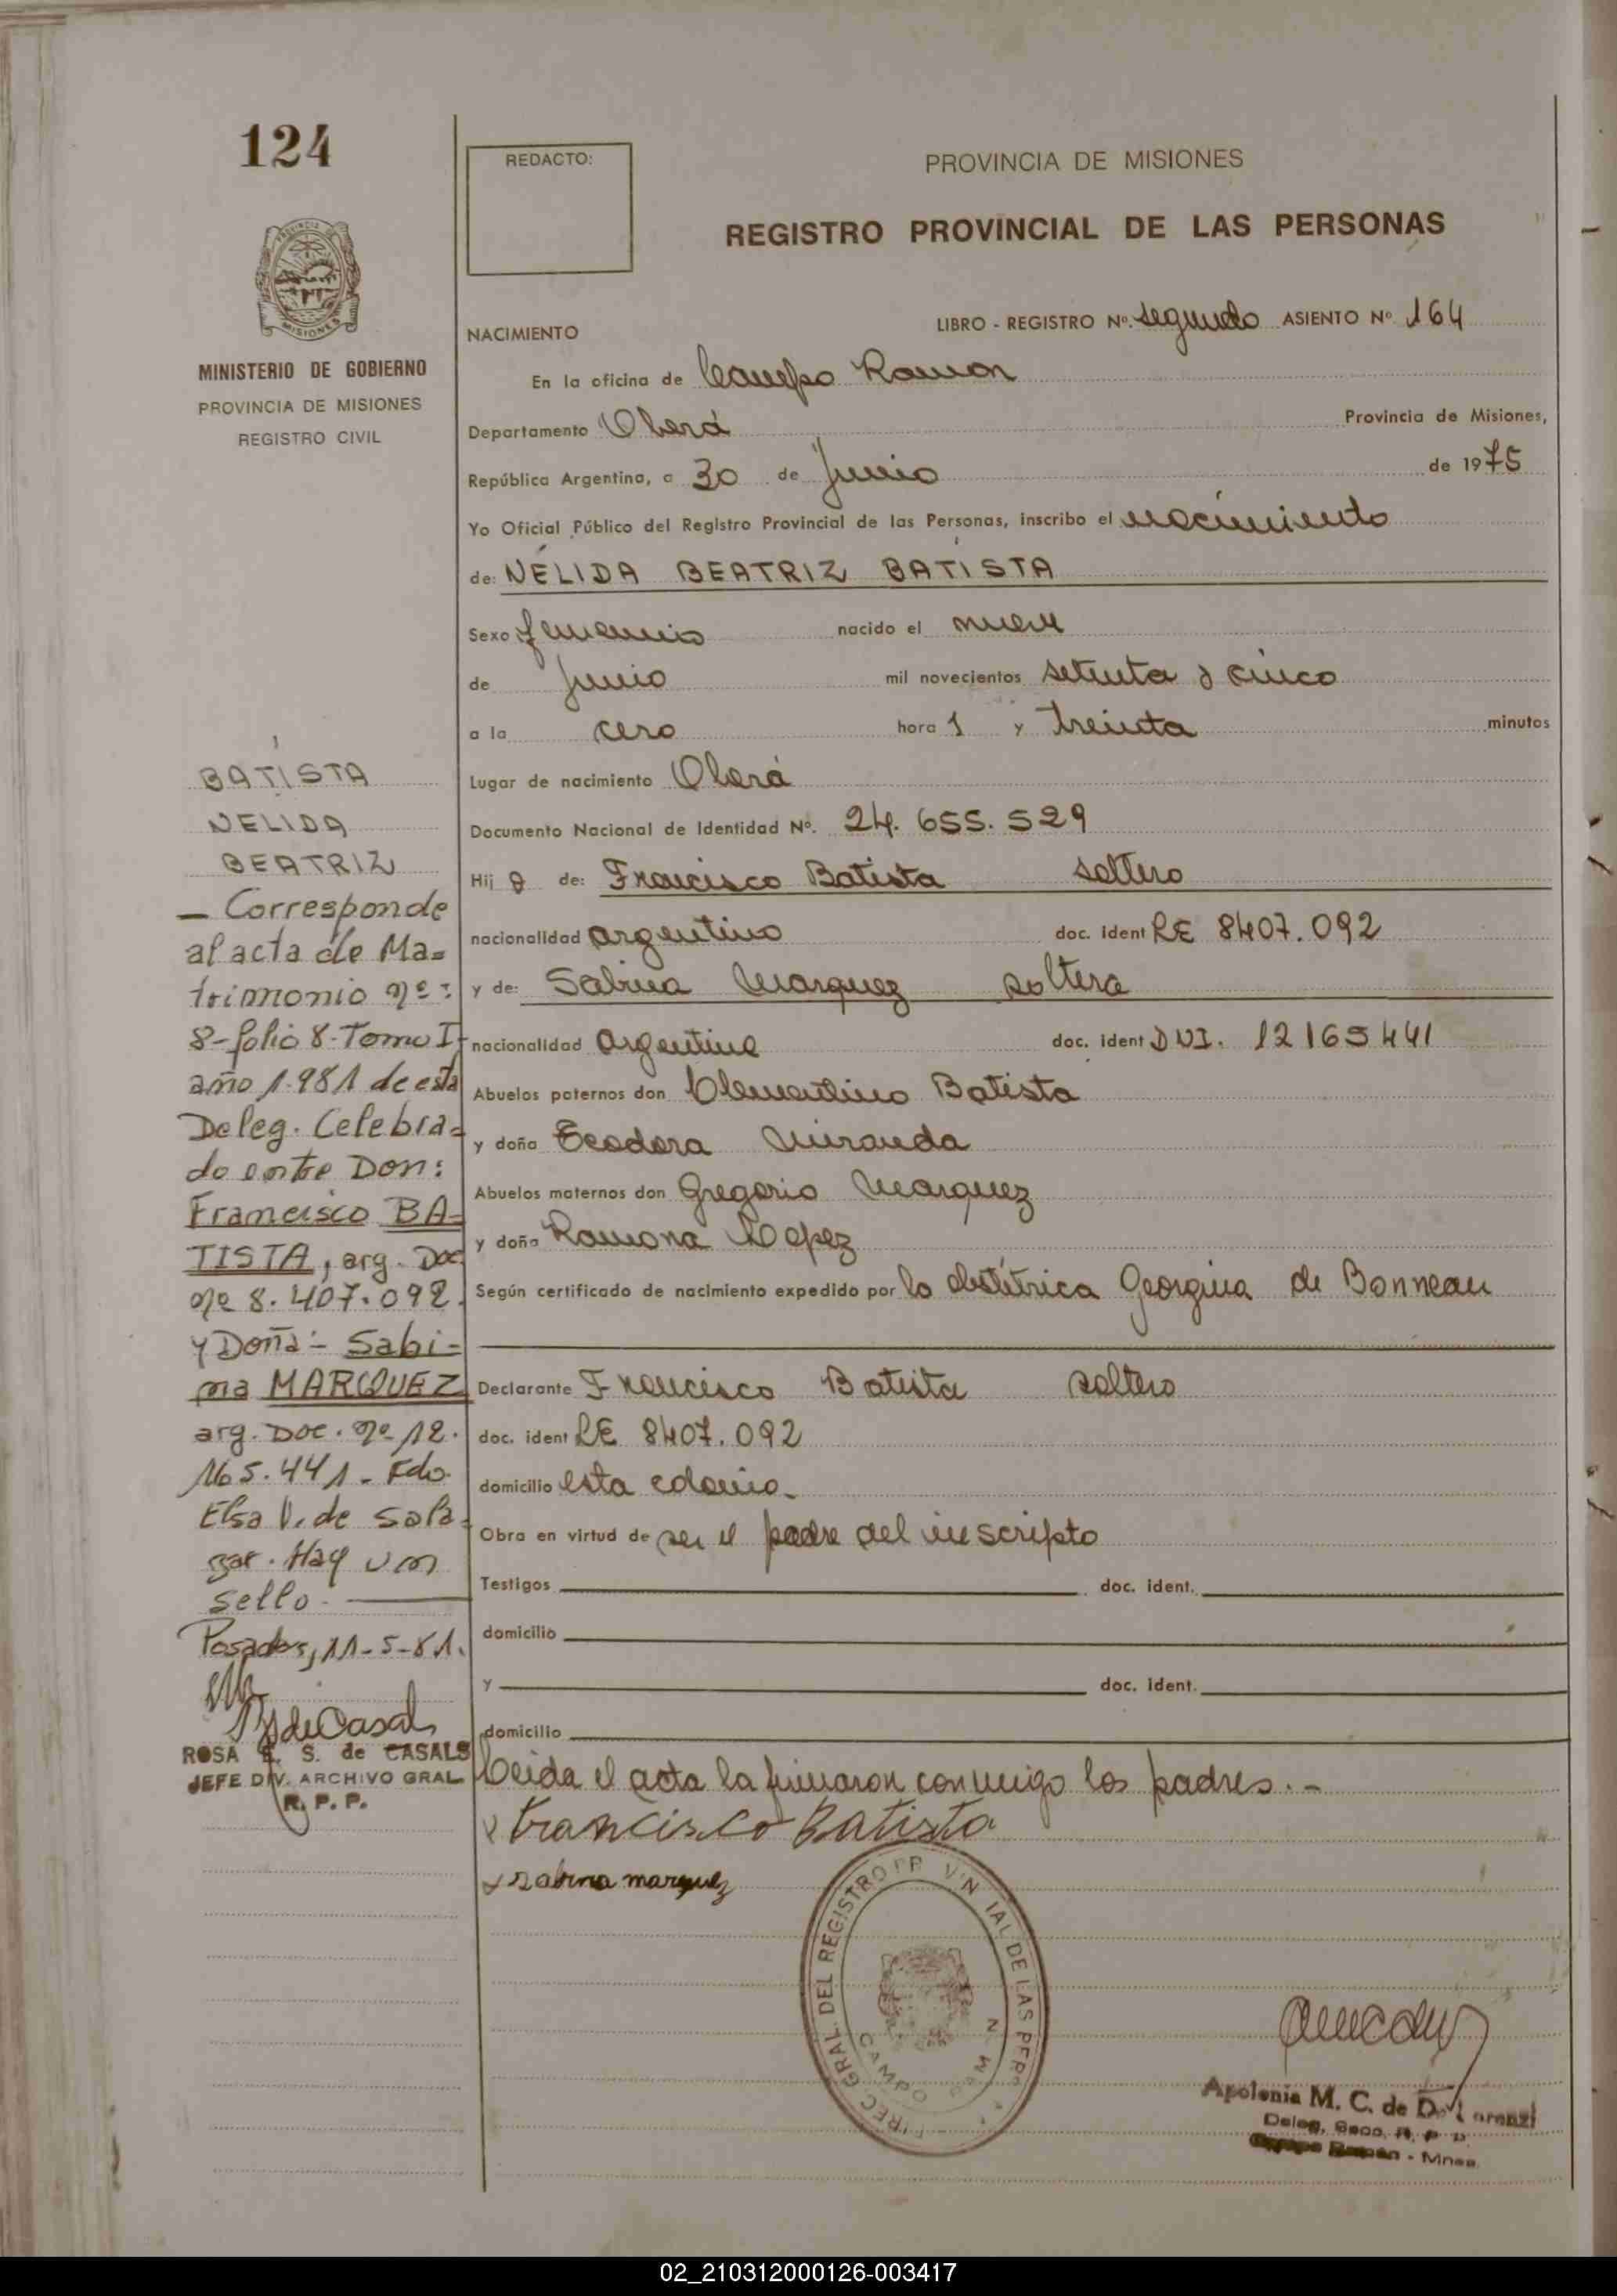 124
MINISTERIO DE GOBIERNO
PROVINCIA DE MISIONES
REGISTRO CIVIL
REDACTO:
PROVINCIA DE MISIONES
REGISTRO PROVINCIAL DE LAS PERSONAS
NACIMIENTO
LIBRO - REGISTRO Nº. segundo ASIENTO Nº 164
En la oficina de Campo Ramon
Departamento Oberá Provincia de Misiones,
República Argentina, a 30 de Junio de 1975
Yo Oficial Público del Registro Provincial de las Personas, inscribo el nacimiento
de: NÉLIDA BEATRIZ BATISTA
Sexo femenino nacido el nueve
de Junio mil novecientos setenta y cinco
a la cero hora 1 y treinta minutos
Lugar de nacimiento Oberá
Documento Nacional de Identidad Nº. 24.655.529
Hij a de: Francisco Batista soltero
nacionalidad argentino doc. ident LE 8407.092
y de: Sabina Marquez soltera
nacionalidad argentina doc. ident DNI. 12165441
Abuelos paternos don Clementino Batista
y doña Teodora Miranda
Abuelos maternos don Gregorio Marquez
y doña Ramona Lopez
Según certificado de nacimiento expedido por la obstétrica Georgina de Bonneau
Declarante Francisco Batista soltero
doc. ident LE 8407.092
domicilio esta colonia.
Obra en virtud de ser el padre del inscripto
Testigos doc. ident.
domicilio
y doc. ident.
domicilio
Leida el acta la firmaron conmigo los padres.-
x Francisco Batista
x sabina marquez
BATISTA
NELIDA
BEATRIZ
— Corresponde
al acta de Ma=
trimonio nº:
8-folio 8-Tomo I-
año 1.981 de esta
Deleg. Celebra=
do entre Don:
Francisco BA=
TISTA, arg. Doc.
nº 8.407.092.
y Doña:- Sabi=
na MARQUEZ
arg. Doc. nº 12.
165.441.- Fdo.
Elsa V. de Sala=
zar. Hay un
sello.-
Posadas, 11-5-81.
ROSA E. S. de CASALS
JEFE DIV. ARCHIVO GRAL.
R. P. P.
DIREC GRAL. DEL REGISTRO PR VIN IAL DE LAS PERS
CAMPO RAM N
Apolonia M. C. de De Lorenzi
Deleg. Secc. R. P. P.
Campo Ramón - Mnes.
02_210312000126-003417